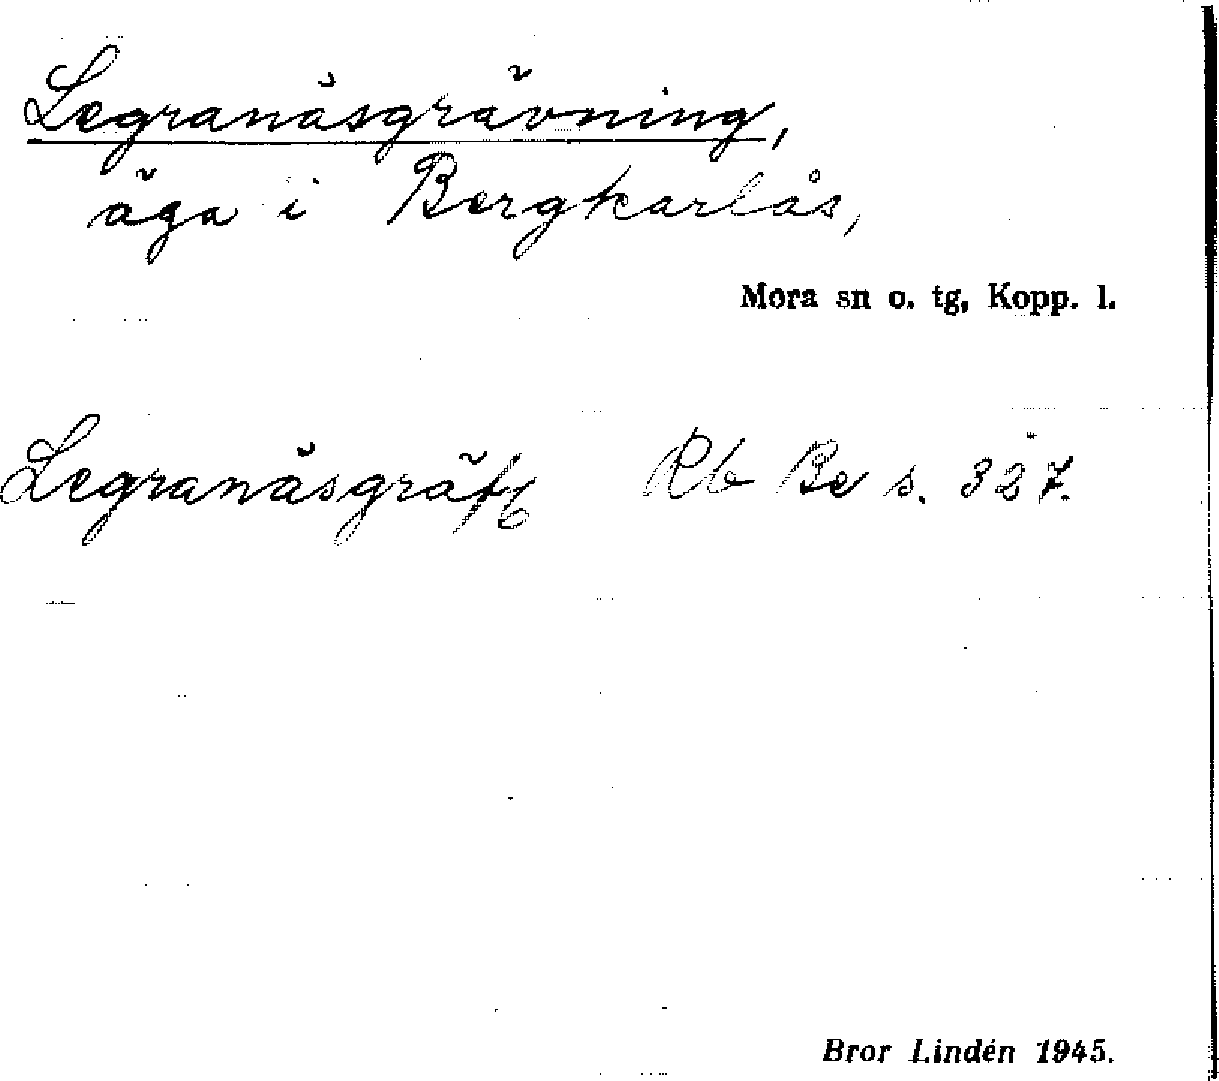 Legranäsgrävning,
äga i Bergkarlås,
Mora sn o. tg, Kopp. l.
Legranäsgräfb Rb Be s. 327.
Bror Lindén 1945.